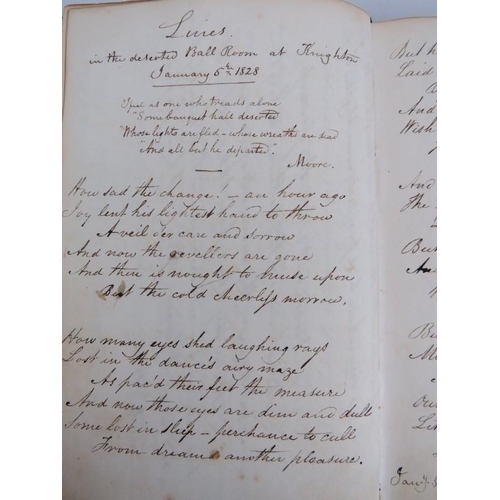 Lines.
in the deserted Ball Room at Knighton
January 5th 1828
I feel as one who treads alone
"Some banquet hall deserted
"Whose lights are fled - whose wreaths are dead
"And all but he departed".
Moore.
How sad the change! - an hour ago
Joy lent his lightest hand to throw
A veil o'er care and sorrow
And now the revellers are gone
And there is nought to muse upon
But the cold cheerless morrow.
How many eyes shed laughing rays
Lost in the dance's airy maze
As pac'd their feet the measure
And now those eyes are dim and dull
Some lost in sleep - perchance to cull
From dreams another pleasure.
But
Laid
And
With
And
The
But
An
But
Our
Jany.